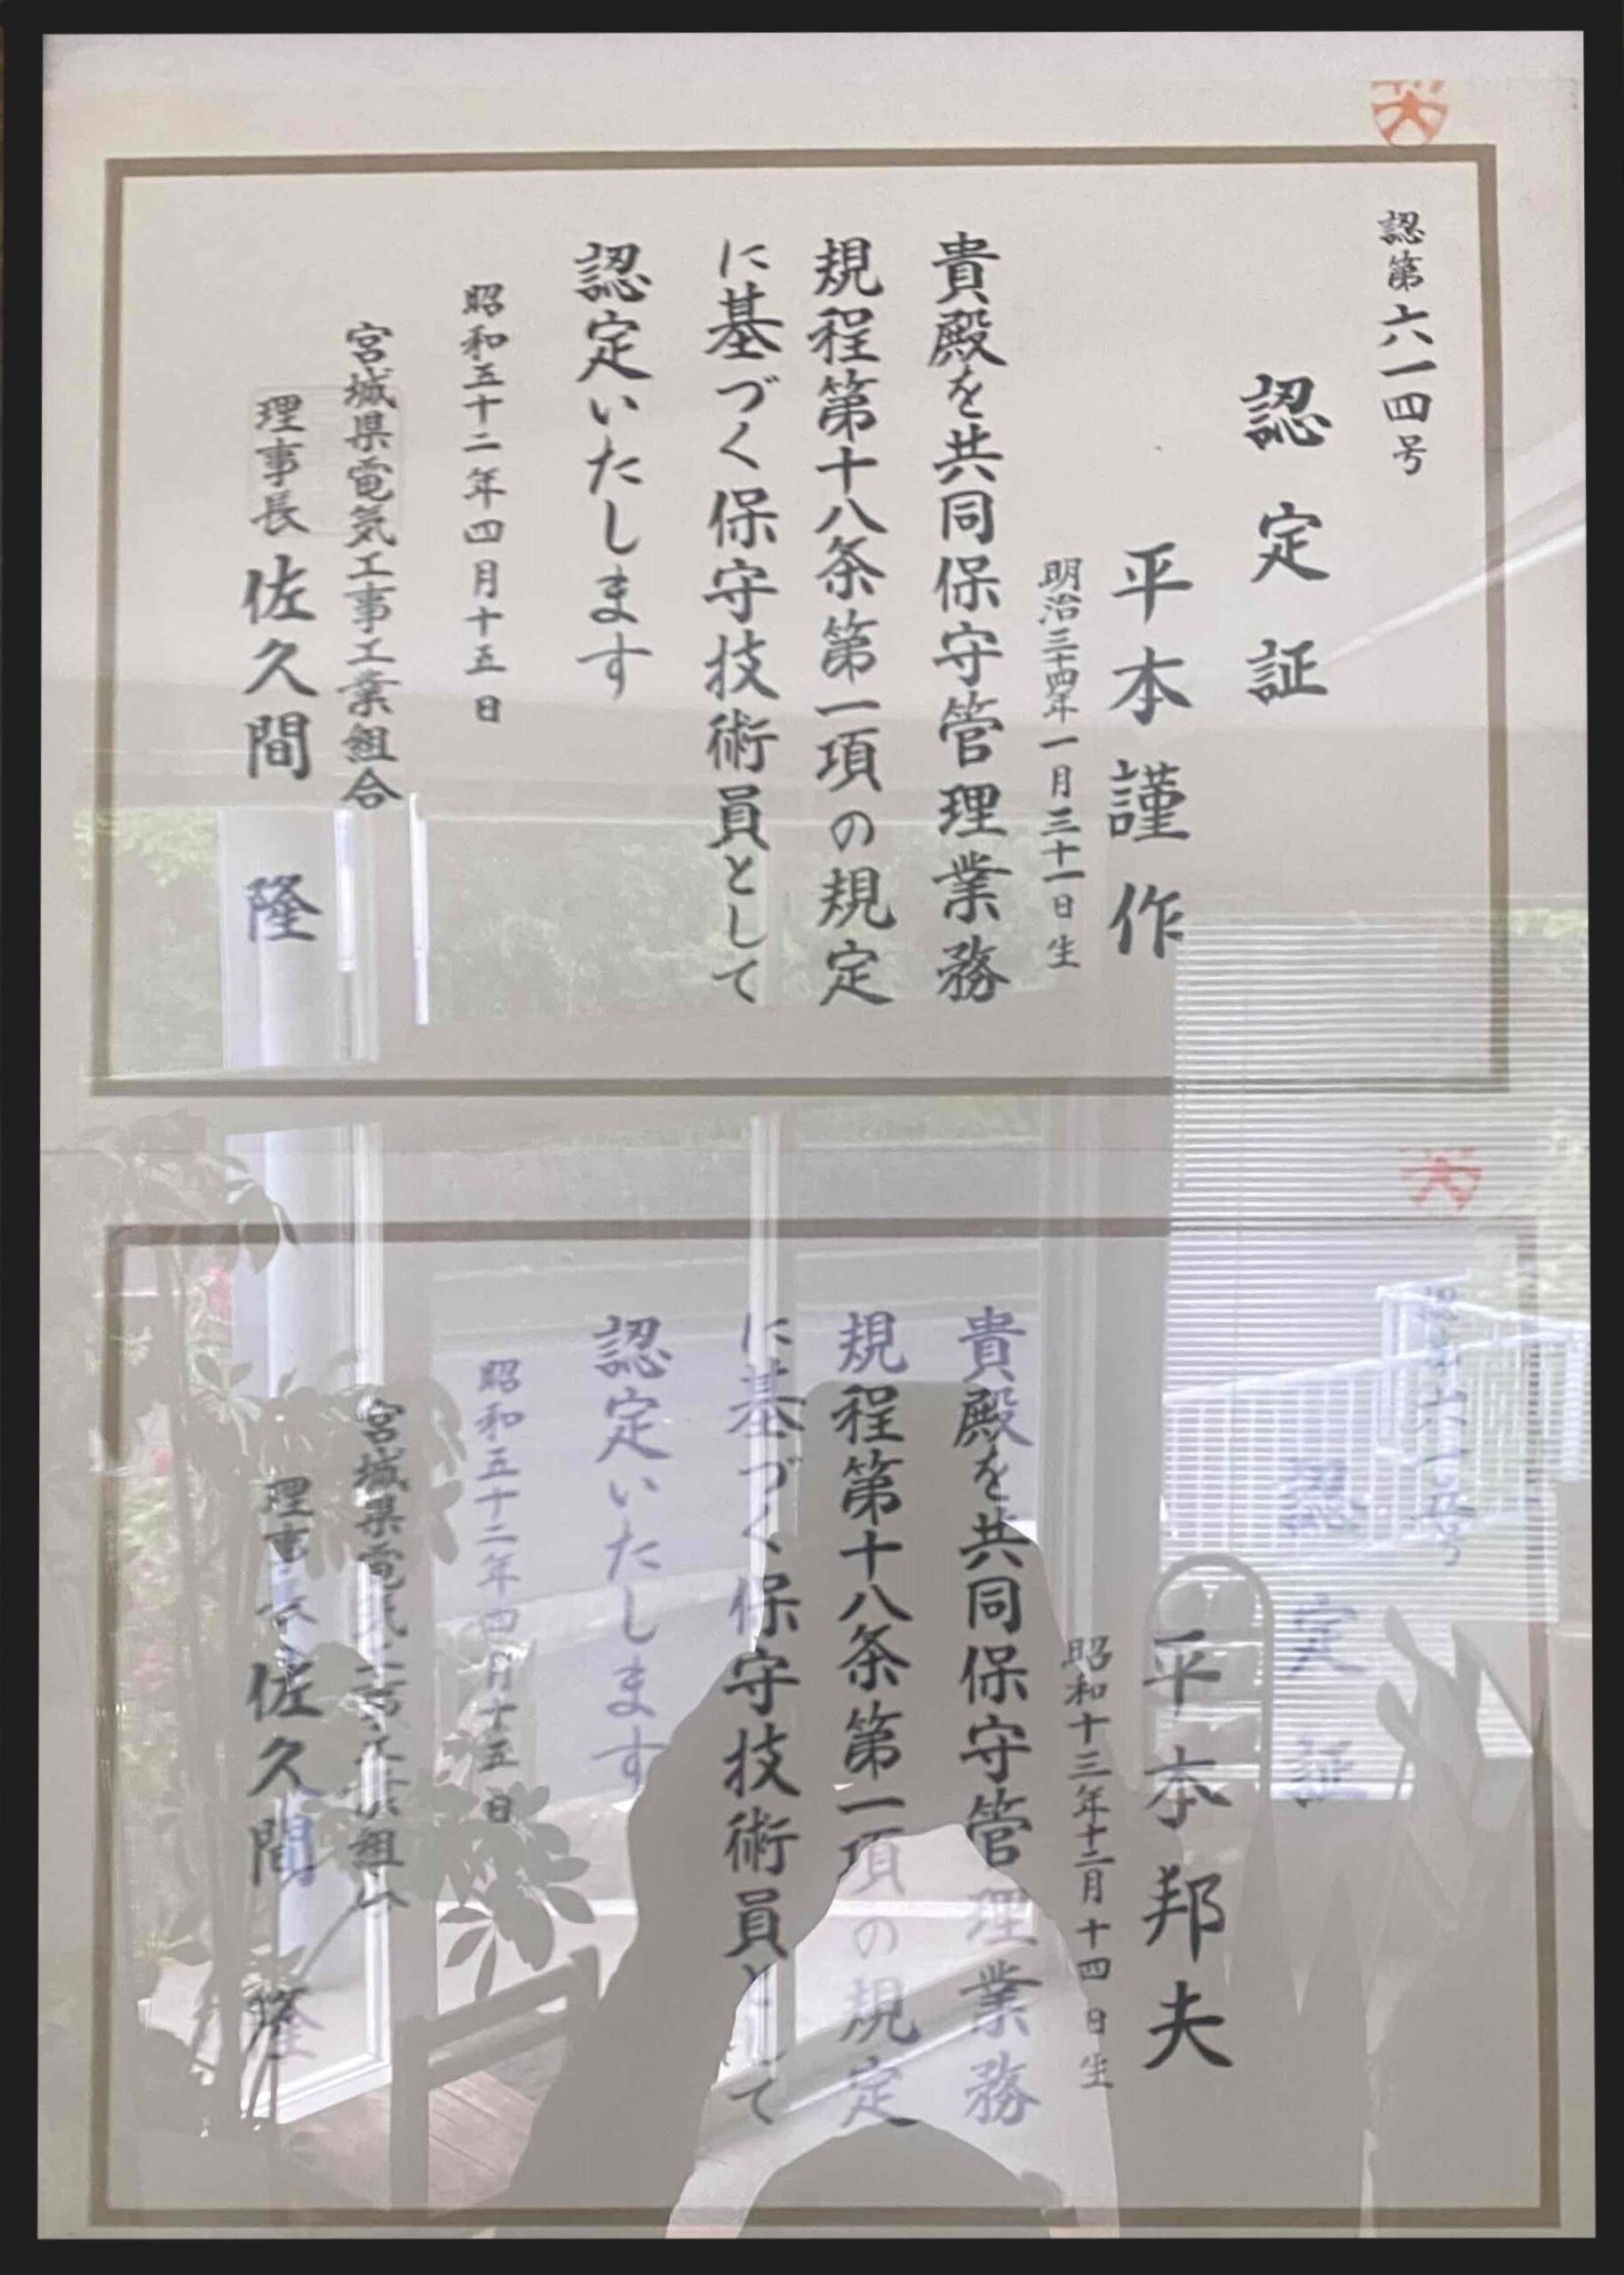 認第六一四号
認定証
平本謹作
明治三十四年一月三十一日生
貴殿を共同保守管理業務
規程第十八条第一項の規定
に基づく保守技術員として
認定いたします
昭和五十二年四月十五日
宮城県電気工事工業組合
理事長 佐久間 隆
認定証
平本邦夫
昭和十三年十二月十四日生
貴殿を共同保守管理業務
規程第十八条第一項の規定
に基づく保守技術員として
認定いたします
昭和五十二年四月十五日
宮城県電気工事工業組合
理事長 佐久間 隆